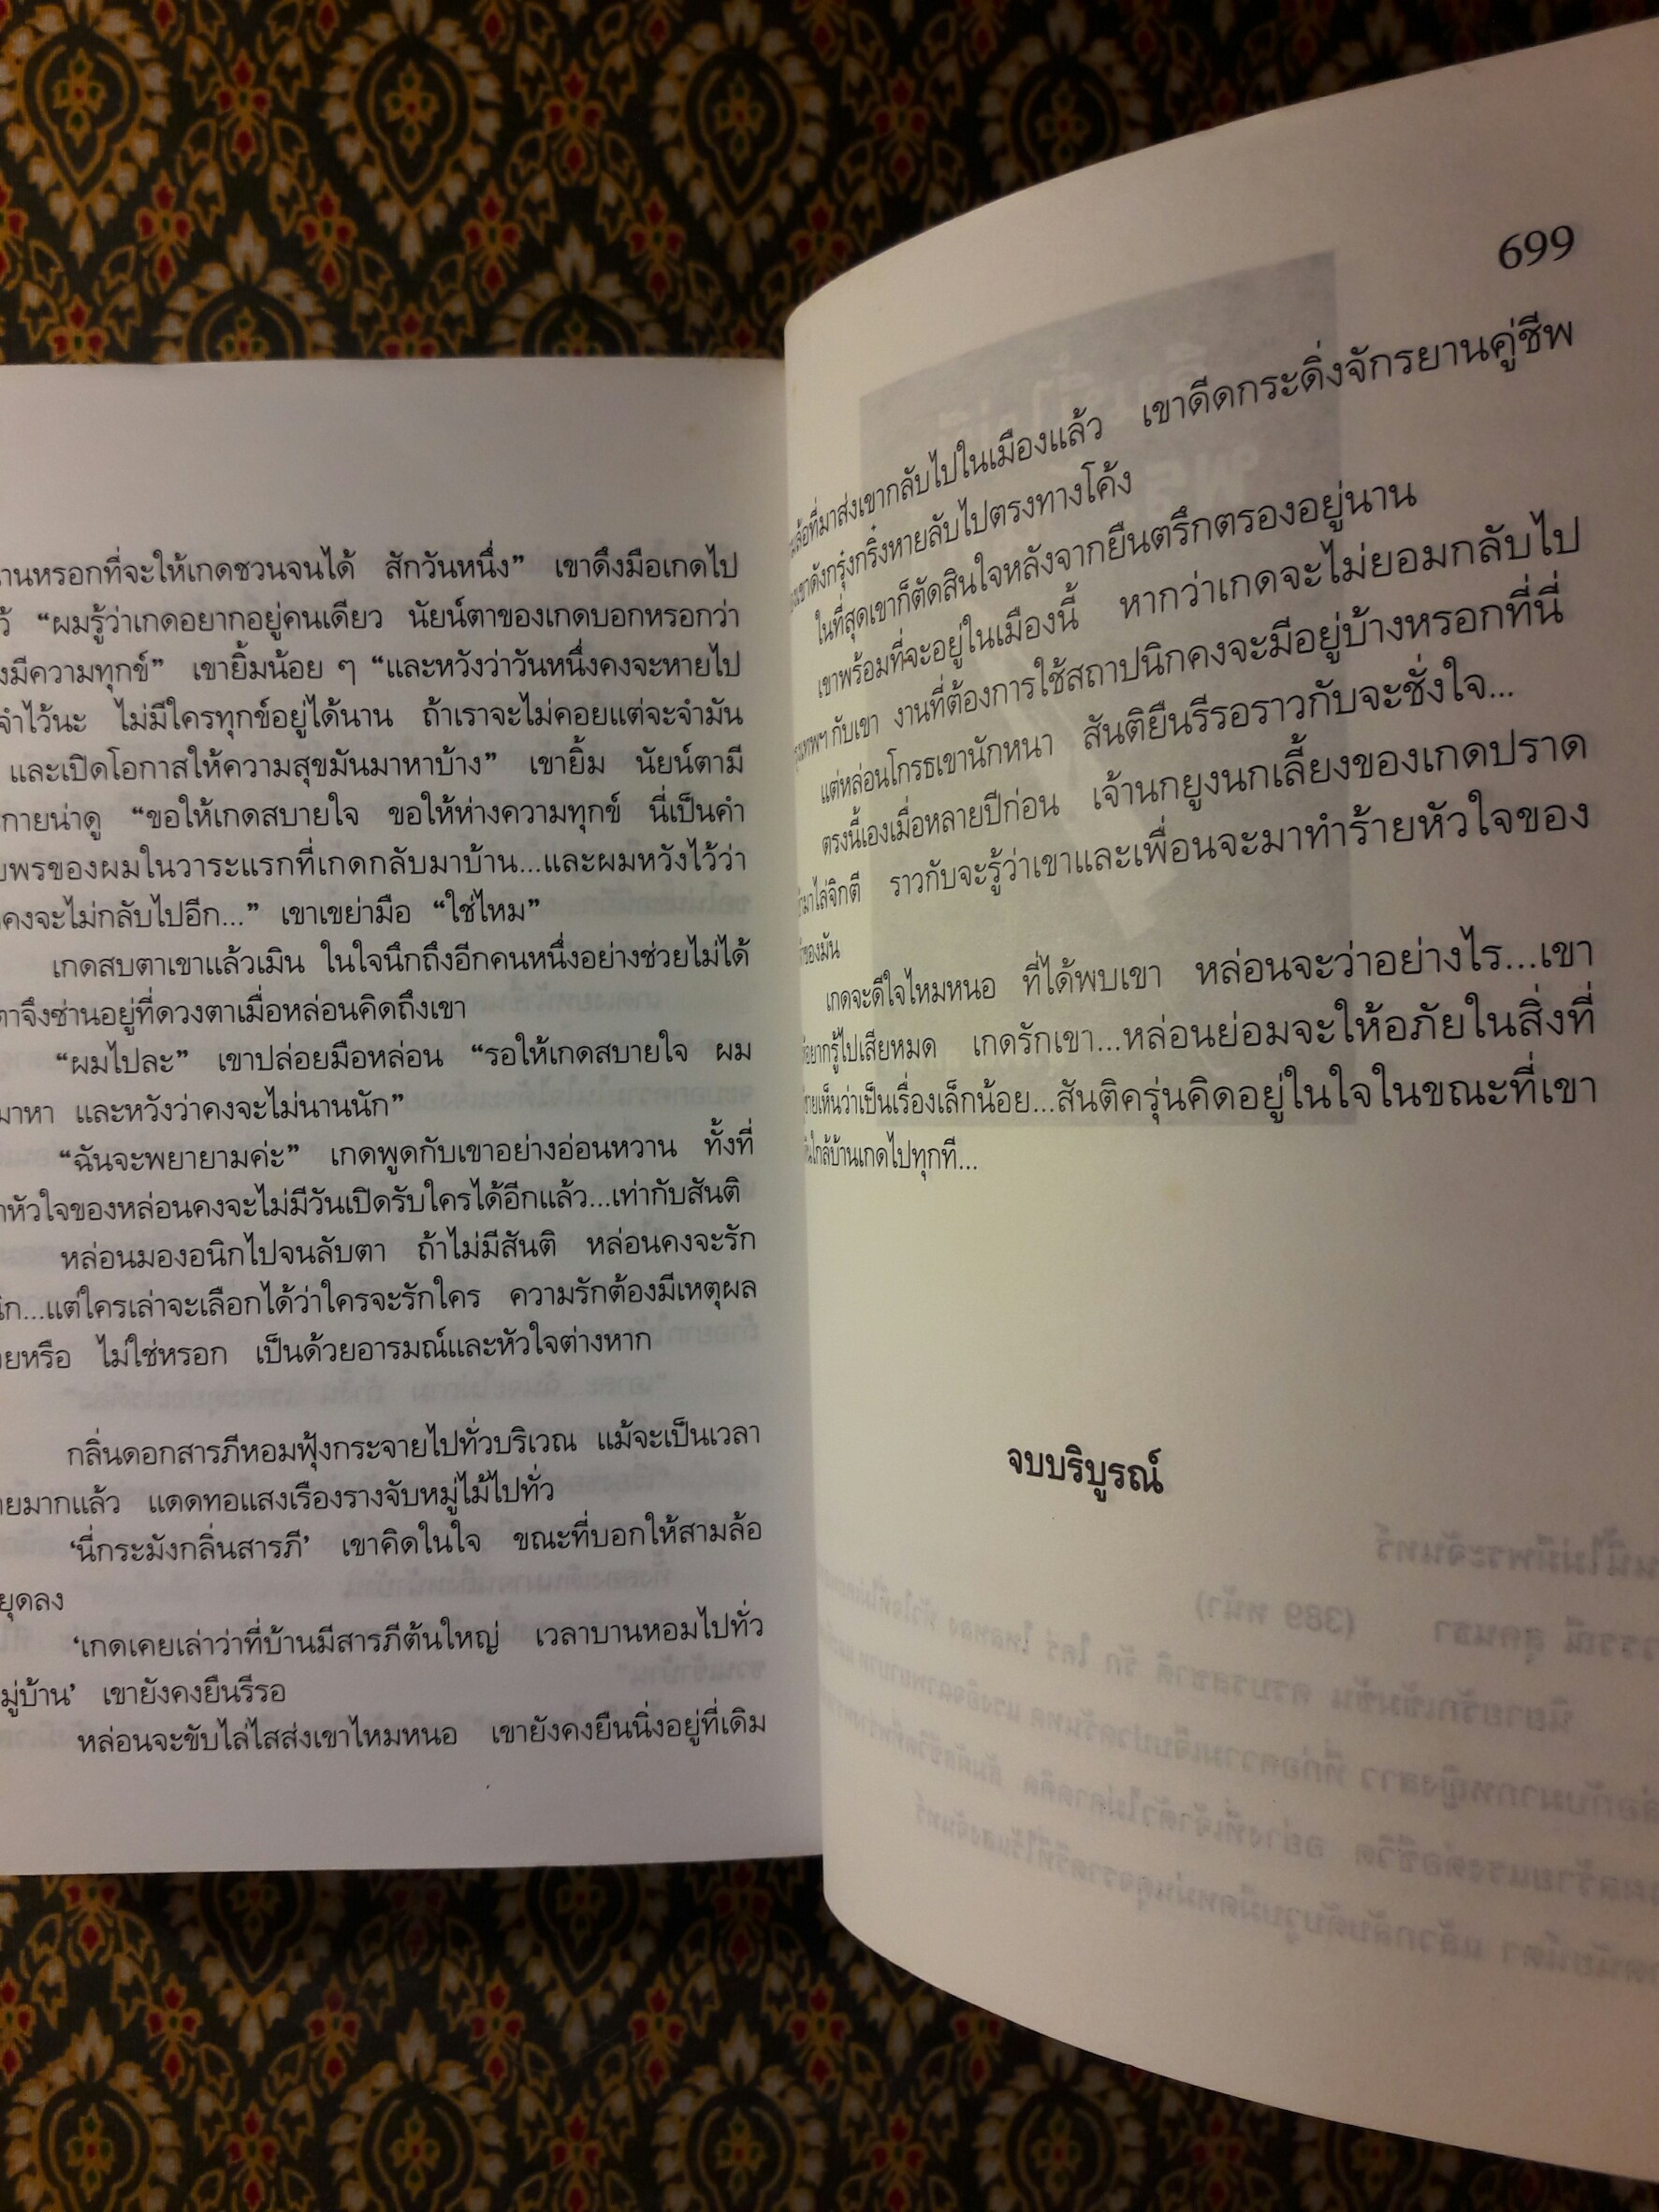 านหรอกที่จะให้เกดชวนจนได้ สักวันหนึ่ง” เขาดึงมือเกดไป
ว้ “ผมรู้ว่าเกดอยากอยู่คนเดียว นัยน์ตาของเกดบอกหรอกว่า
งมีความทุกข์” เขายิ้มน้อย ๆ “และหวังว่าวันหนึ่งคงจะหายไป
จำไว้นะ ไม่มีใครทุกข์อยู่ได้นาน ถ้าเราจะไม่คอยแต่จะจำมัน
และเปิดโอกาสให้ความสุขมันมาหาบ้าง” เขายิ้ม นัยน์ตามี
กายน่าดู “ขอให้เกดสบายใจ ขอให้ห่างความทุกข์ นี่เป็นคำ
พรของผมในวาระแรกที่เกดกลับมาบ้าน...และผมหวังไว้ว่า
คงจะไม่กลับไปอีก...” เขาเขย่ามือ “ใช่ไหม”
เกดสบตาเขาแล้วเมิน ในใจนึกถึงอีกคนหนึ่งอย่างช่วยไม่ได้
ตาจึงซ่านอยู่ที่ดวงตาเมื่อหล่อนคิดถึงเขา
“ผมไปละ” เขาปล่อยมือหล่อน “รอให้เกดสบายใจ ผม
มาหา และหวังว่าคงจะไม่นานนัก”
“ฉันจะพยายามค่ะ” เกดพูดกับเขาอย่างอ่อนหวาน ทั้งที่
าหัวใจของหล่อนคงจะไม่มีวันเปิดรับใครได้อีกแล้ว...เท่ากับสันติ
หล่อนมองอนิกไปจนลับตา ถ้าไม่มีสันติ หล่อนคงจะรัก
นิก...แต่ใครเล่าจะเลือกได้ว่าใครจะรักใคร ความรักต้องมีเหตุผล
ยหรือ ไม่ใช่หรอก เป็นด้วยอารมณ์และหัวใจต่างหาก
กลิ่นดอกสารภีหอมฟุ้งกระจายไปทั่วบริเวณ แม้จะเป็นเวลา
ยมากแล้ว แดดทอแสงเรืองรางจับหมู่ไม้ไปทั่ว
‘นี่กระมังกลิ่นสารภี’ เขาคิดในใจ ขณะที่บอกให้สามล้อ
ยุดลง
‘เกดเคยเล่าว่าที่บ้านมีสารภีต้นใหญ่ เวลาบานหอมไปทั่ว
มู่บ้าน’ เขายังคงยืนรีรอ
หล่อนจะขับไล่ไสส่งเขาไหมหนอ เขายังคงยืนนิ่งอยู่ที่เดิม
699
ล้อที่มาส่งเขากลับไปในเมืองแล้ว เขาดีดกระดิ่งจักรยานคู่ชีพ
เขาดังกรุ๋งกริ๋งหายลับไปตรงทางโค้ง
ในที่สุดเขาก็ตัดสินใจหลังจากยืนตรึกตรองอยู่นาน
เขาพร้อมที่จะอยู่ในเมืองนี้ หากว่าเกดจะไม่ยอมกลับไป
เทพฯ กับเขา งานที่ต้องการใช้สถาปนิกคงจะมีอยู่บ้างหรอกที่นี่
แต่หล่อนโกรธเขานักหนา สันติยืนรีรอราวกับจะชั่งใจ...
ตรงนี้เองเมื่อหลายปีก่อน เจ้านกยูงนกเลี้ยงของเกดปราด
มาไล่จิกตี ราวกับจะรู้ว่าเขาและเพื่อนจะมาทำร้ายหัวใจของ
ของมัน
เกดจะดีใจไหมหนอ ที่ได้พบเขา หล่อนจะว่าอย่างไร...เขา
อยากรู้ไปเสียหมด เกดรักเขา...หล่อนย่อมจะให้อภัยในสิ่งที่
เห็นว่าเป็นเรื่องเล็กน้อย...สันติครุ่นคิดอยู่ในใจในขณะที่เขา
ใกล้บ้านเกดไปทุกที...
จบบริบูรณ์